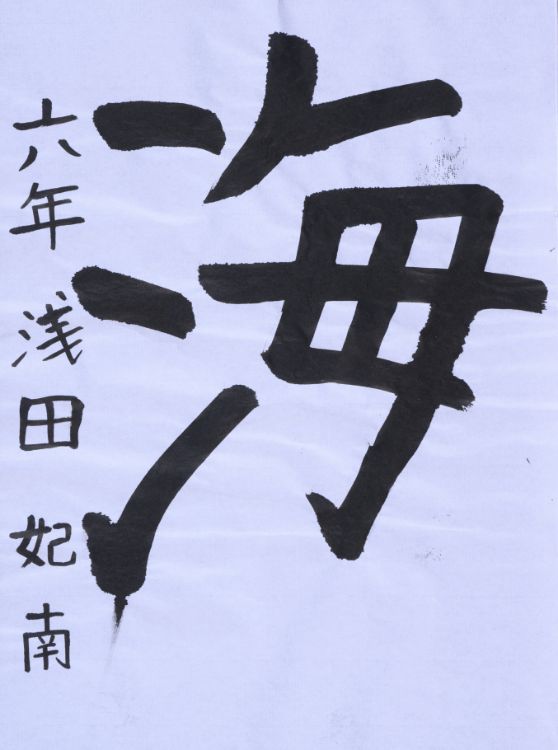 海
六年 浅田 妃南